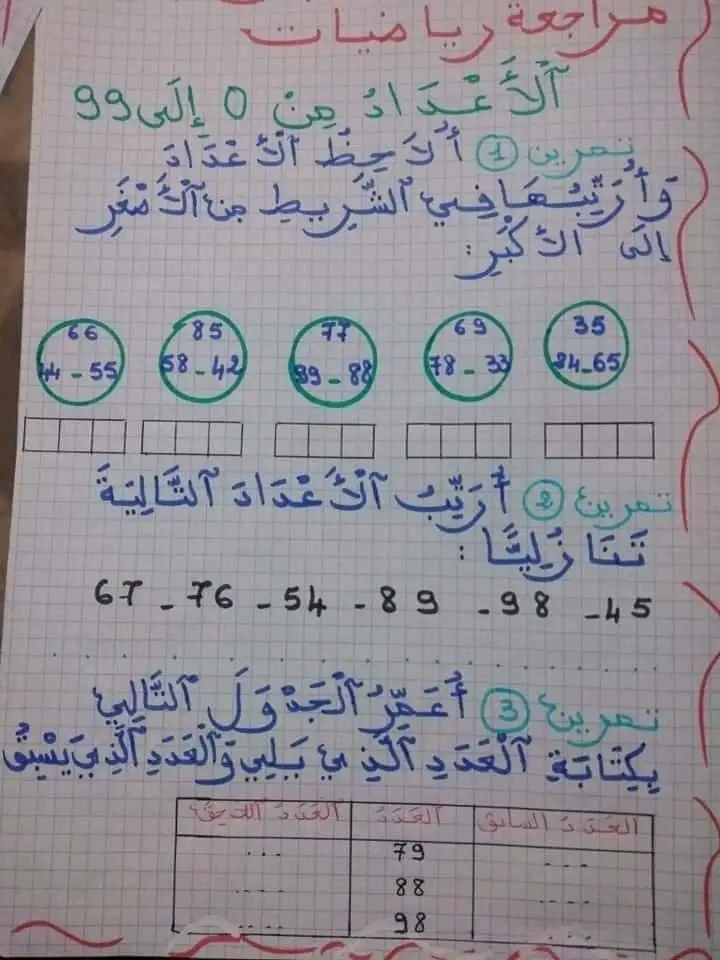 مراجعة رياضيات
اَلْأَعْدَادُ مِنْ 0 إِلَى 99
تمرين 1 أُلَاحِظُ اَلْأَعْدَادَ
وَأُرَتِّبُهَا فِي الشَّرِيطِ مِنَ اَلْأَصْغَرِ
إِلَى الأَكْبَرِ:
35 69 77 85 66
84-65 78-33 99-88 58-42 44-55
تمرين 2 أُرَتِّبُ اَلْأَعْدَادَ التَّالِيَةَ
تَنَازُلِيًّا:
67 - 76 - 54 - 89 - 98 - 45
تمرين 3 أُعَمِّرُ اَلْجَدْوَلَ التَّالِي
بِكِتَابَةِ اَلْعَدَدِ اَلَّذِي يَلِي وَاَلْعَدَدِ اَلَّذِي يَسْبِقُ
العدد السابق العدد العدد اللاحق
... 79 ...
... 88 ...
... 98 ...